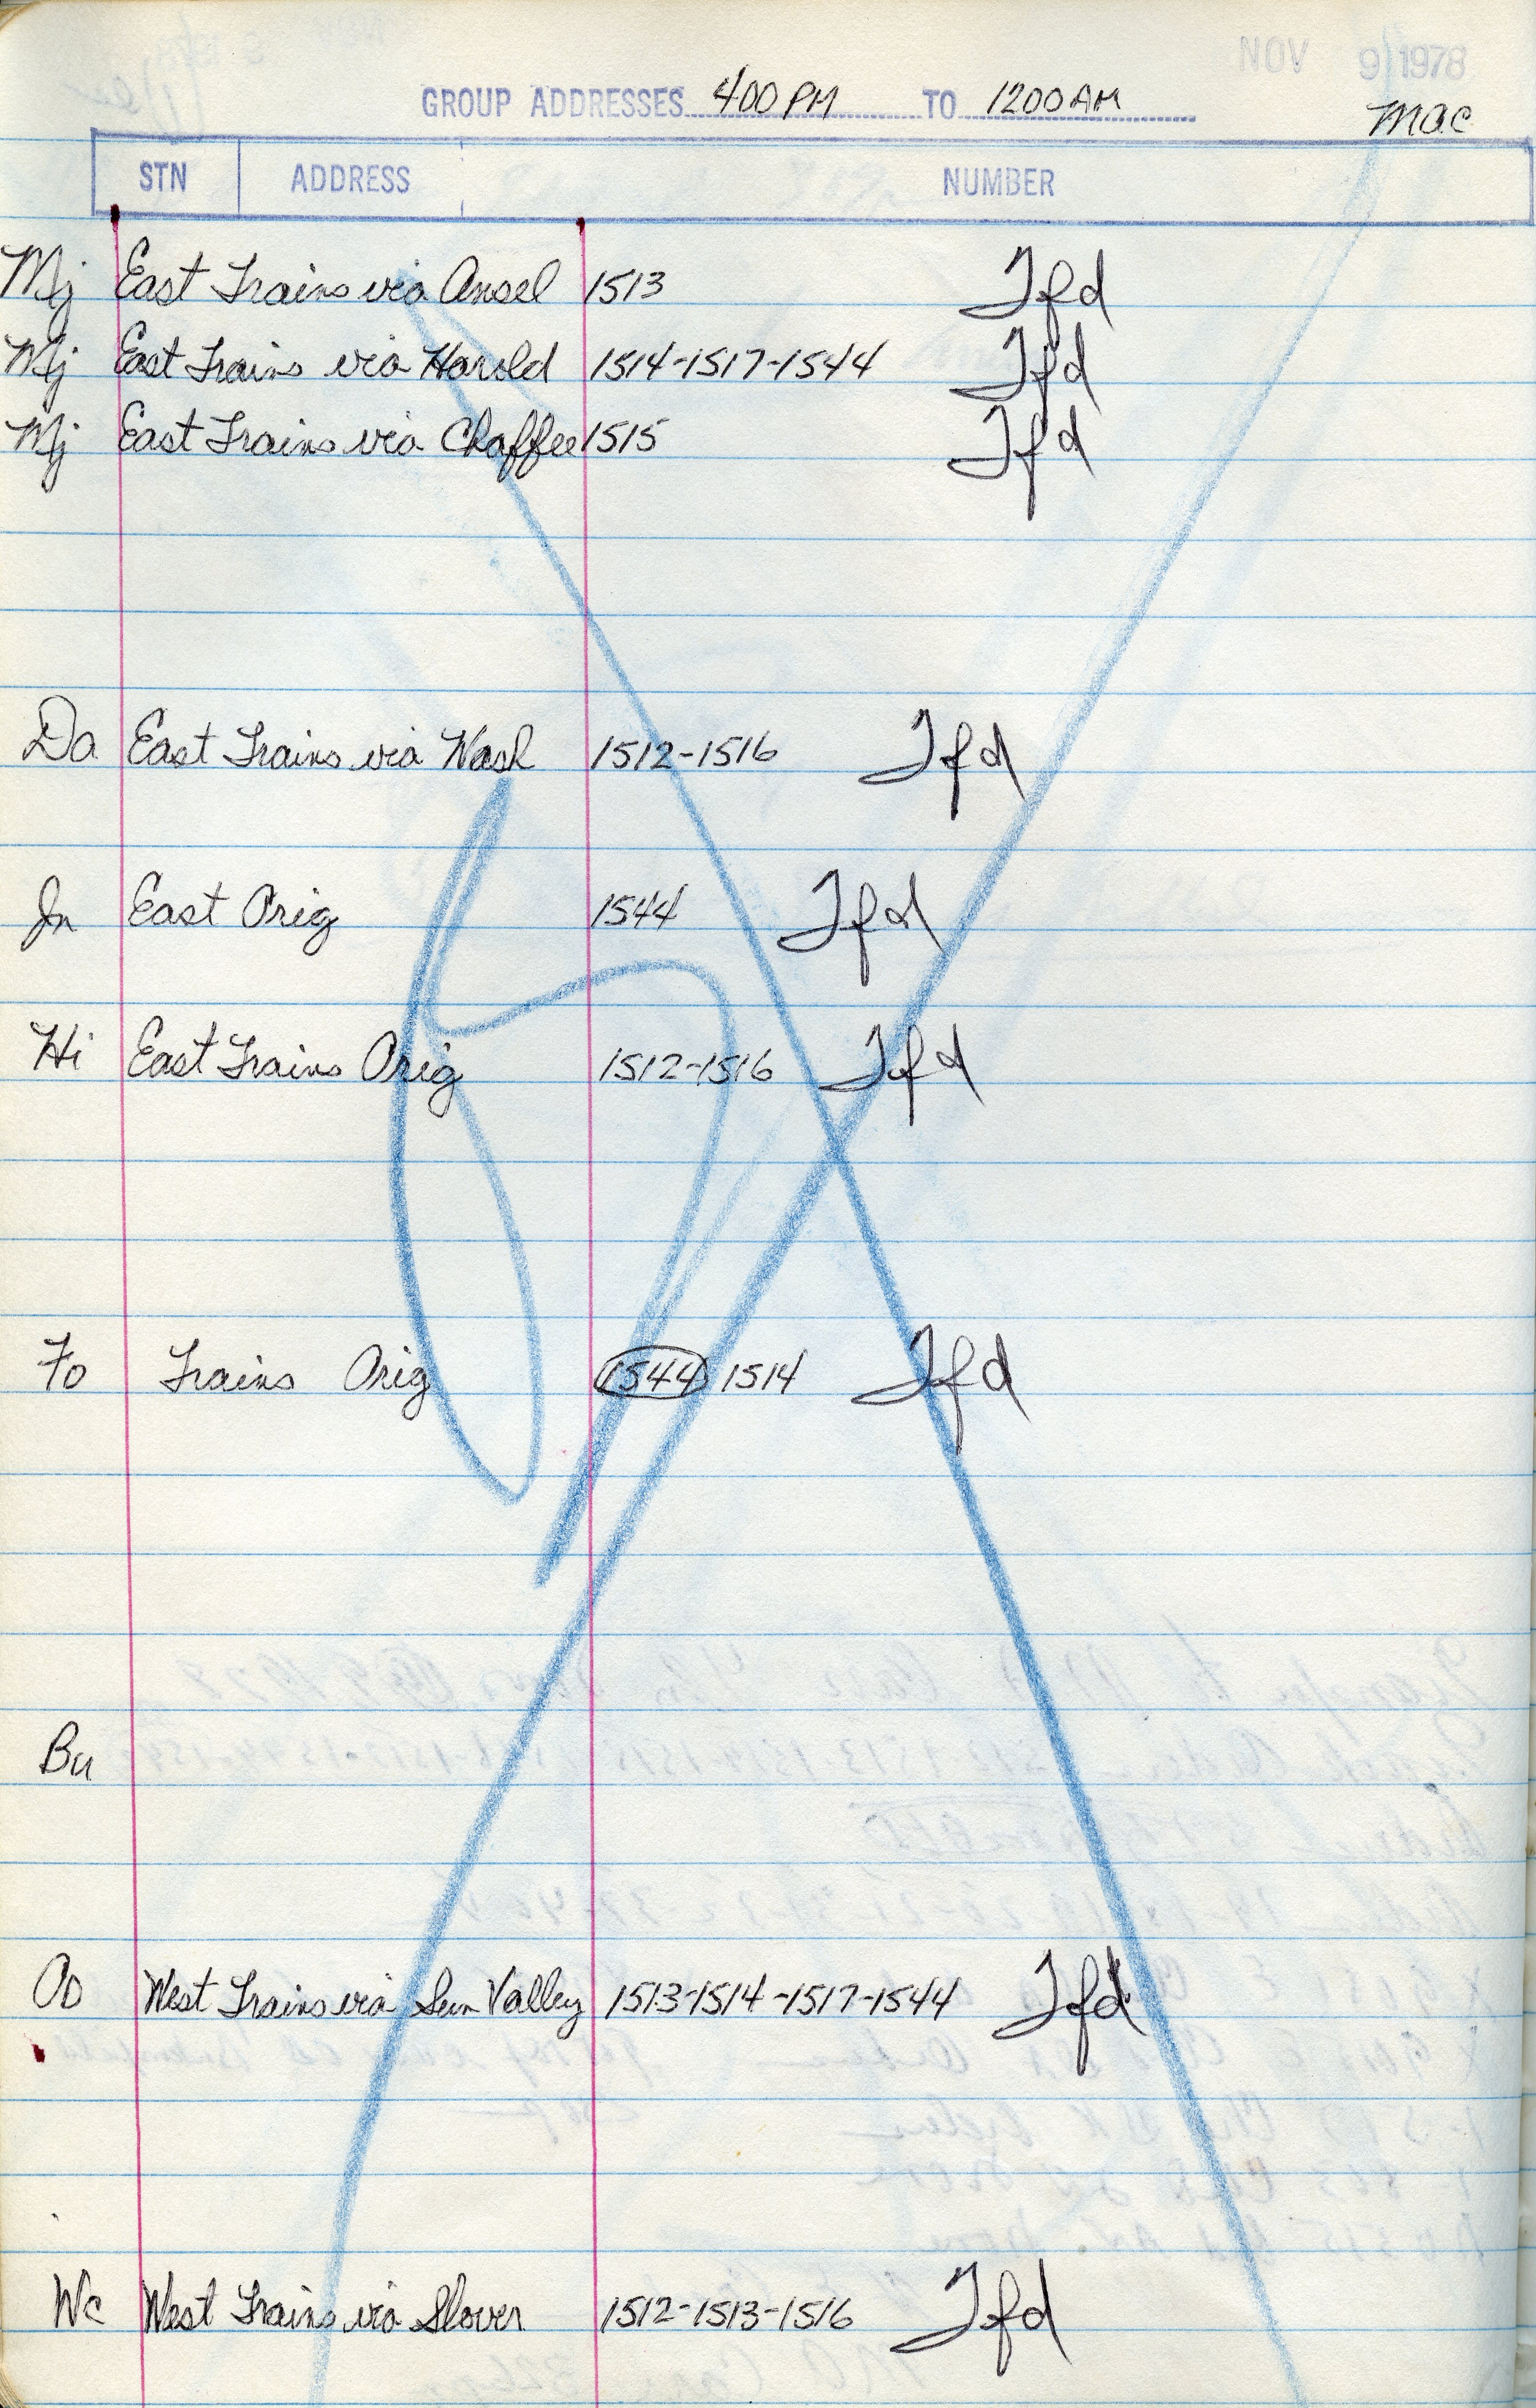 NOV 9 1978
GROUP ADDRESSES 400 PM TO 1200 AM
mac
STN ADDRESS NUMBER
Mj East Trains via Ansel 1513 Tfd
Mj East Trains via Harold 1514-1517-1544 Tfd
Mj East Trains via Chaffee 1515 Tfd
Da East Trains via Nash 1512-1516 Tfd
Jn East Orig 1544 Tfd
Hi East Trains Orig 1512-1516 Tfd
Fo Trains Orig 1544 1514 Tfd
Bu
Oo West Trains via Sun Valley 1513-1514-1517-1544 Tfd
Wc West Trains via Slover 1512-1513-1516 Tfd